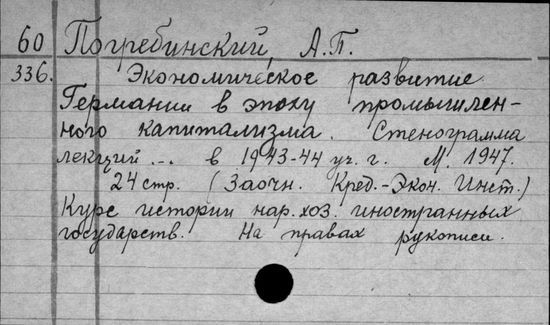 60 Погребинский, А.П.
336. Экономическое развитие
Германии в эпоху промышлен-
ного капитализма. Стенограмма
лекций ... в 1943-44 уч. г. М. 1947.
24 стр. (Заочн. Кред.-Экон. Инст.)
Курс истории нар. хоз. иностранных
государств. На правах рукописи.